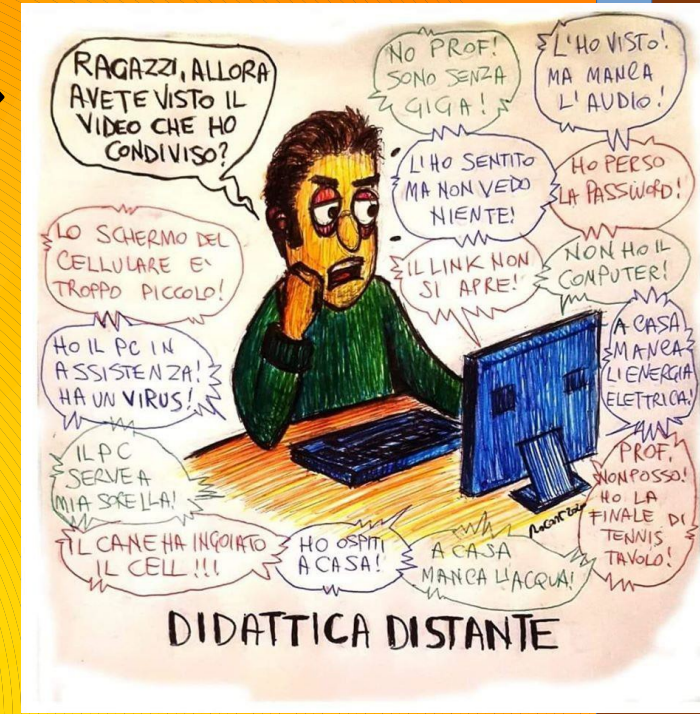 RAGAZZI, ALLORA
AVETE VISTO IL
VIDEO CHE HO
CONDIVISO?
NO PROF!
SONO SENZA
GIGA!
L'HO VISTO!
MA MANCA
L'AUDIO!
L'HO SENTITO
MA NON VEDO
NIENTE!
HO PERSO
LA PASSWORD!
LO SCHERMO DEL
CELLULARE E'
TROPPO PICCOLO!
IL LINK NON
SI APRE!
NON HO IL
COMPUTER!
HO IL PC IN
ASSISTENZA!
HA UN VIRUS!
A CASA
MANCA
L'ENERGIA
ELETTRICA!
IL PC
SERVE A
MIA SORELLA!
PROF,
NON POSSO!
HO LA
FINALE DI
TENNIS
TAVOLO!
IL CANE HA INGOIATO
IL CELL!!!
HO OSPITI
A CASA!
A CASA
MANCA L'ACQUA!
DIDATTICA DISTANTE